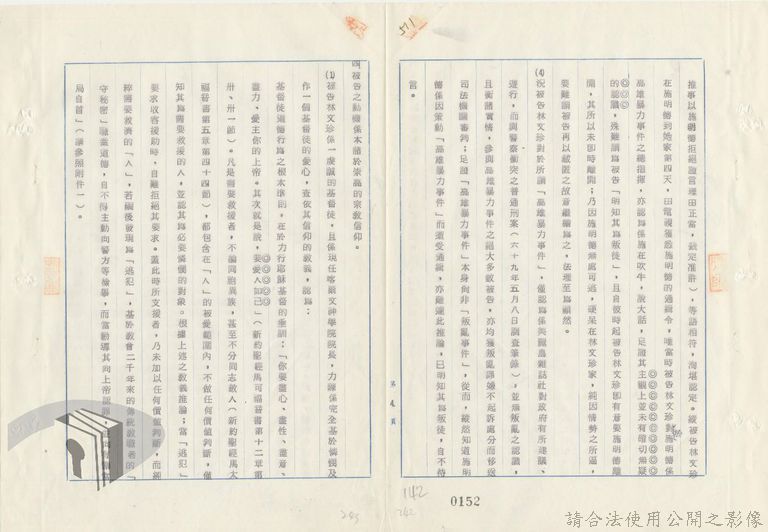 推事以施明德拒絕證言理由正當，裁定准許），等語相符，洵堪認定。縱被告林文珍
在施明德到她家第四天，由電視獲悉施明德的通緝令，唯當時被告林文珍對施明德係
高雄暴力事件之總指揮，亦認為係施在吹牛，說大話，足證其主觀上並未有確切無疑
的認識，殊難謂為被告「明知其為叛徒」，且自彼時起被告林文珍即有意要施明德離
開，其所以未即時離開；乃因施明德無處可逃，硬呆在林文珍家，純因情勢之所逼，
要難謂被告再以藏匿之故意繼續為之，法理至為顯然。
(4)況被告林文珍對於所謂「高雄暴力事件」，僅認為係美麗島雜誌社對政府有所建議，
遊行，而與警察衝突之普通刑案（六十九年五月八日調查筆錄），並無叛亂之認識，
且衡諸實情，參與高雄暴力事件之絕大多數被告，亦均獲叛亂罪嫌不起訴處分而移送
司法機關審判；足證「高雄暴力事件」本身尚非「叛亂事件」，從而，縱然知道施明
德係因策動「高雄暴力事件」而遭受通緝，亦難遽此推論，已明知其為叛徒，自不待
言。
第 九 頁
四被告之動機係本諸於崇高的宗教信仰。
(1)被告林文珍係一虔誠的基督徒，且係現任喀爾文神學院院長，力課係完全基於憐憫及
作一個基督徒的愛心，查依其信仰的教義，認為：
基督徒道德行為之根本準則，在於力行耶穌基督的垂訓：「你要盡心、盡性、盡意、
盡力、愛主你的上帝。其次就是說，要愛人如己」（新約聖經馬可福音書第十二章第
卅、卅一節）。凡是需要救援者，不論同胞異族，甚至不分同志敵人（新約聖經馬太
福音書第五章第四十四節），都包含在「人」的被愛範圍內，不做任何價值判斷，僅
知其為需要救援的人，並認其為必要憐憫的對象。根據上述之教義推論；當「逃犯」
要求收容援助時，自難拒絕其要求。蓋此時所支援者，乃未加以任何價值判斷，而純
粹需要救濟的「人」，若嗣後發現為「逃犯」，基於教會二千年來的傳統教職者的「
守秘密」職業道德，自不得主動向警方等檢舉，而當勸導其向上帝認罪，
局自首」（請參照附件一）。
571
1142
0152
請合法使用公開之影像